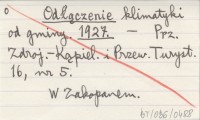 o Odłączenie klimatyki
od gminy. 1927. — Prz.
Zdroj.-Kąpiel. i Przew. Turyst.
16, nr 5.
W Zakopanem.
bT/086/0488